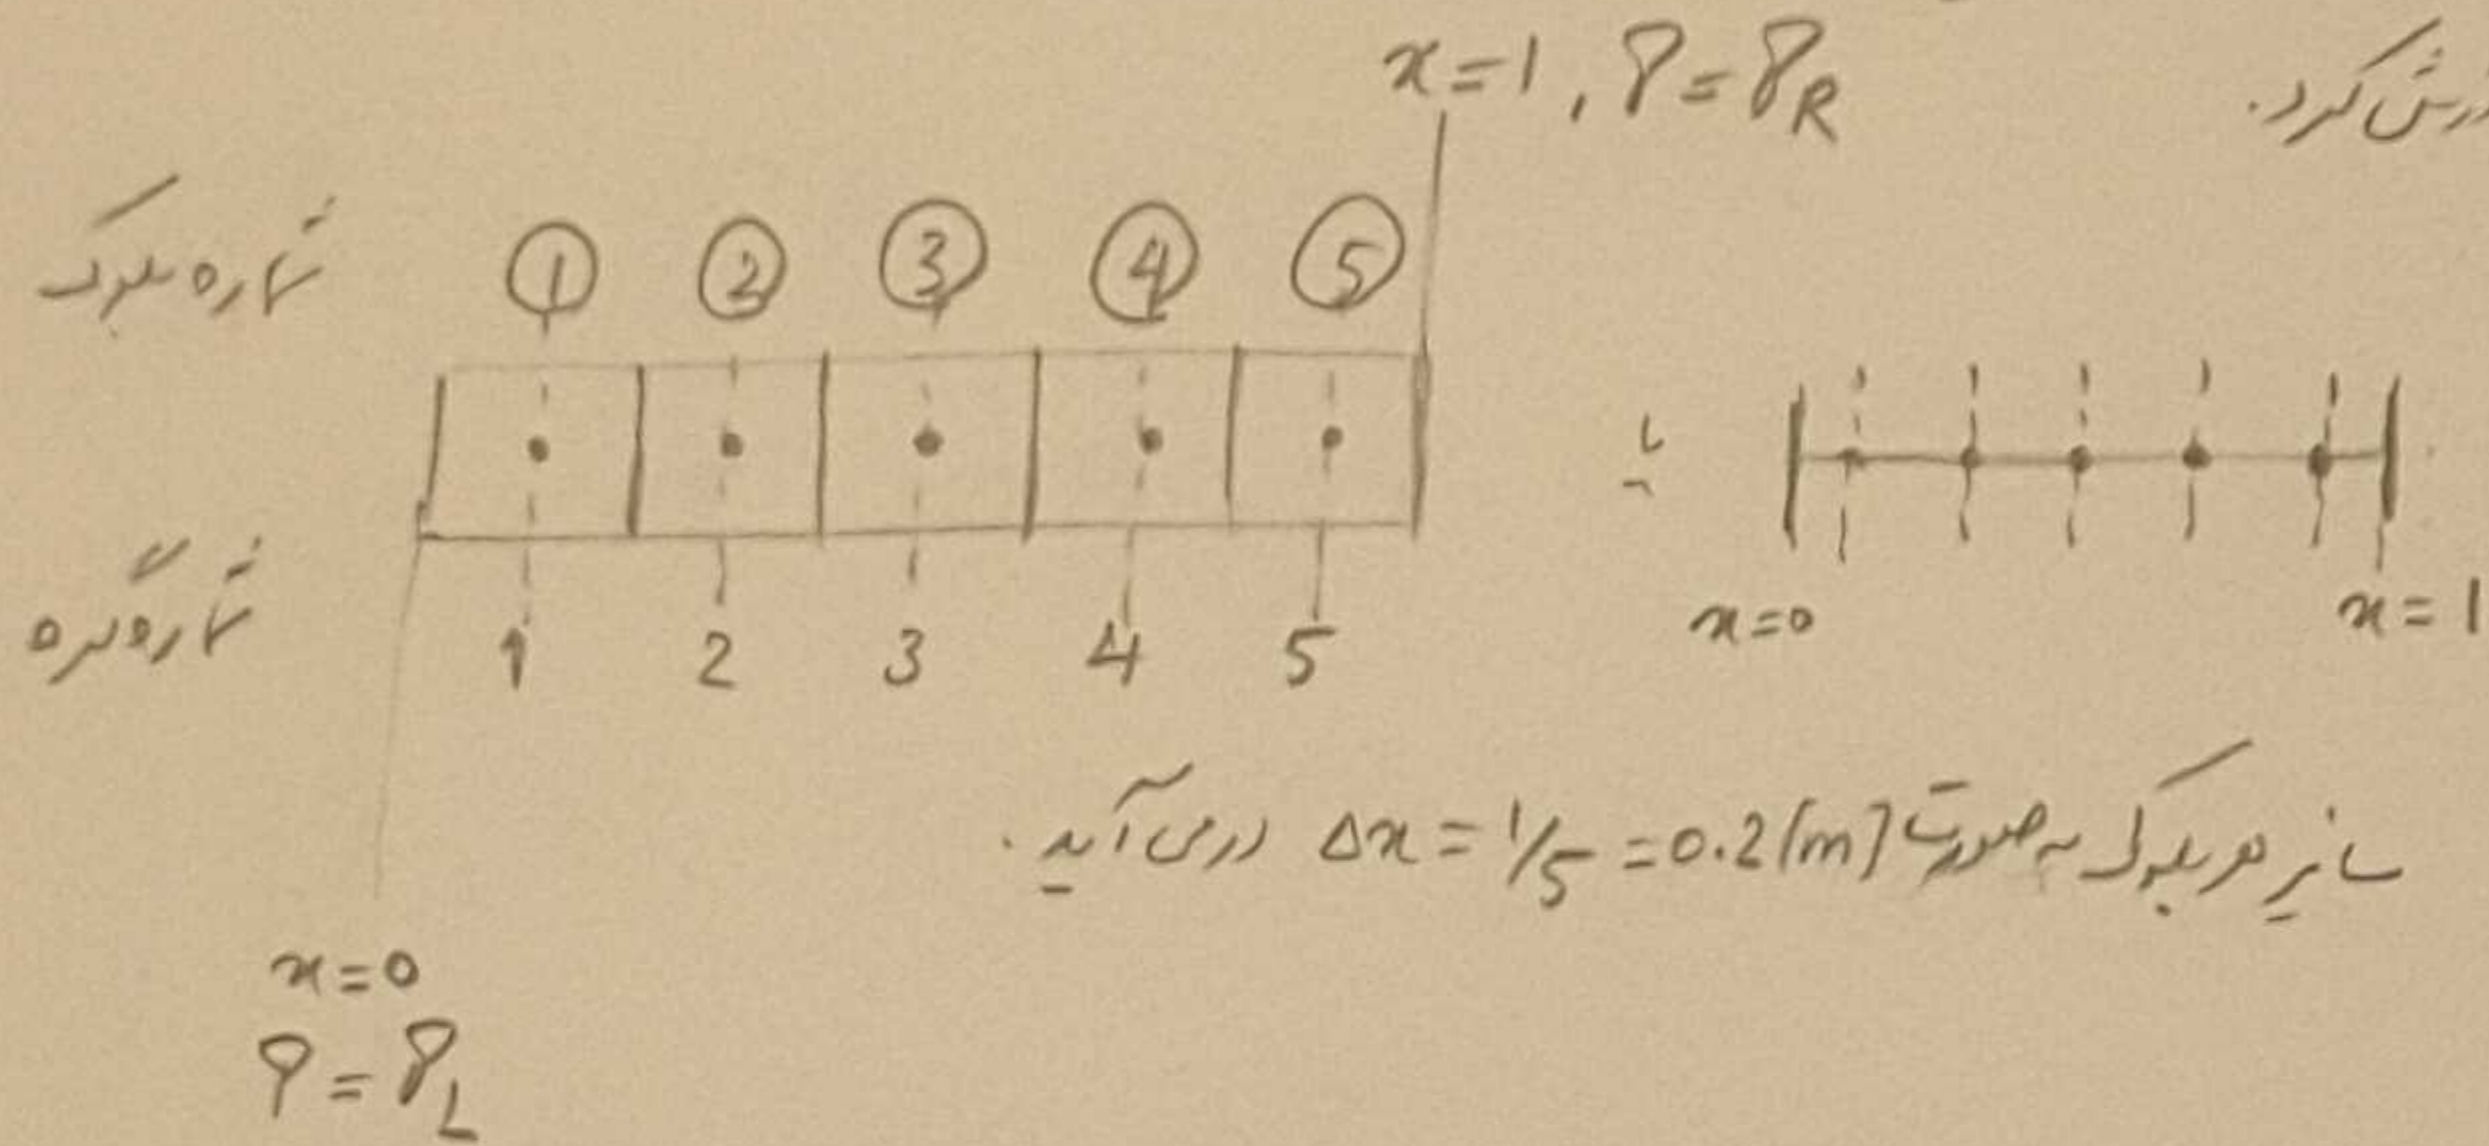 x=1, P=P_R
کرد.
شماره بلوک ① ② ③ ④ ⑤
شماره گره 1 2 3 4 5
یا
x=0 x=1
سایز هر بلوک به صورت Δx = 1/5 = 0.2 [m] در می آید.
x=0
P=P_L